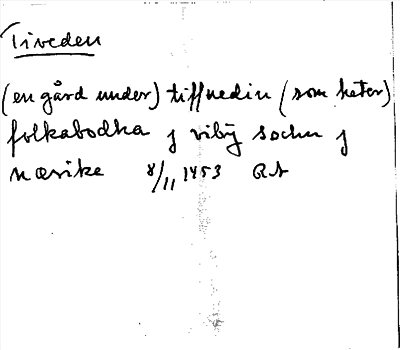 Tiveden
(en gård under) tiffuedin (som heter)
folkabodha j viby sochn j
nærike 8/11 1453 RA